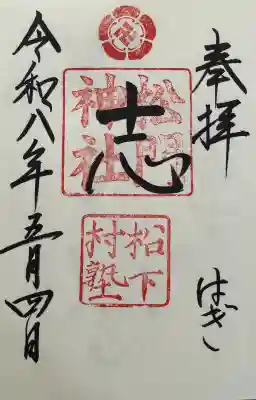 奉拝
はぎ
志
松陰神社
松下村塾
令和八年五月四日